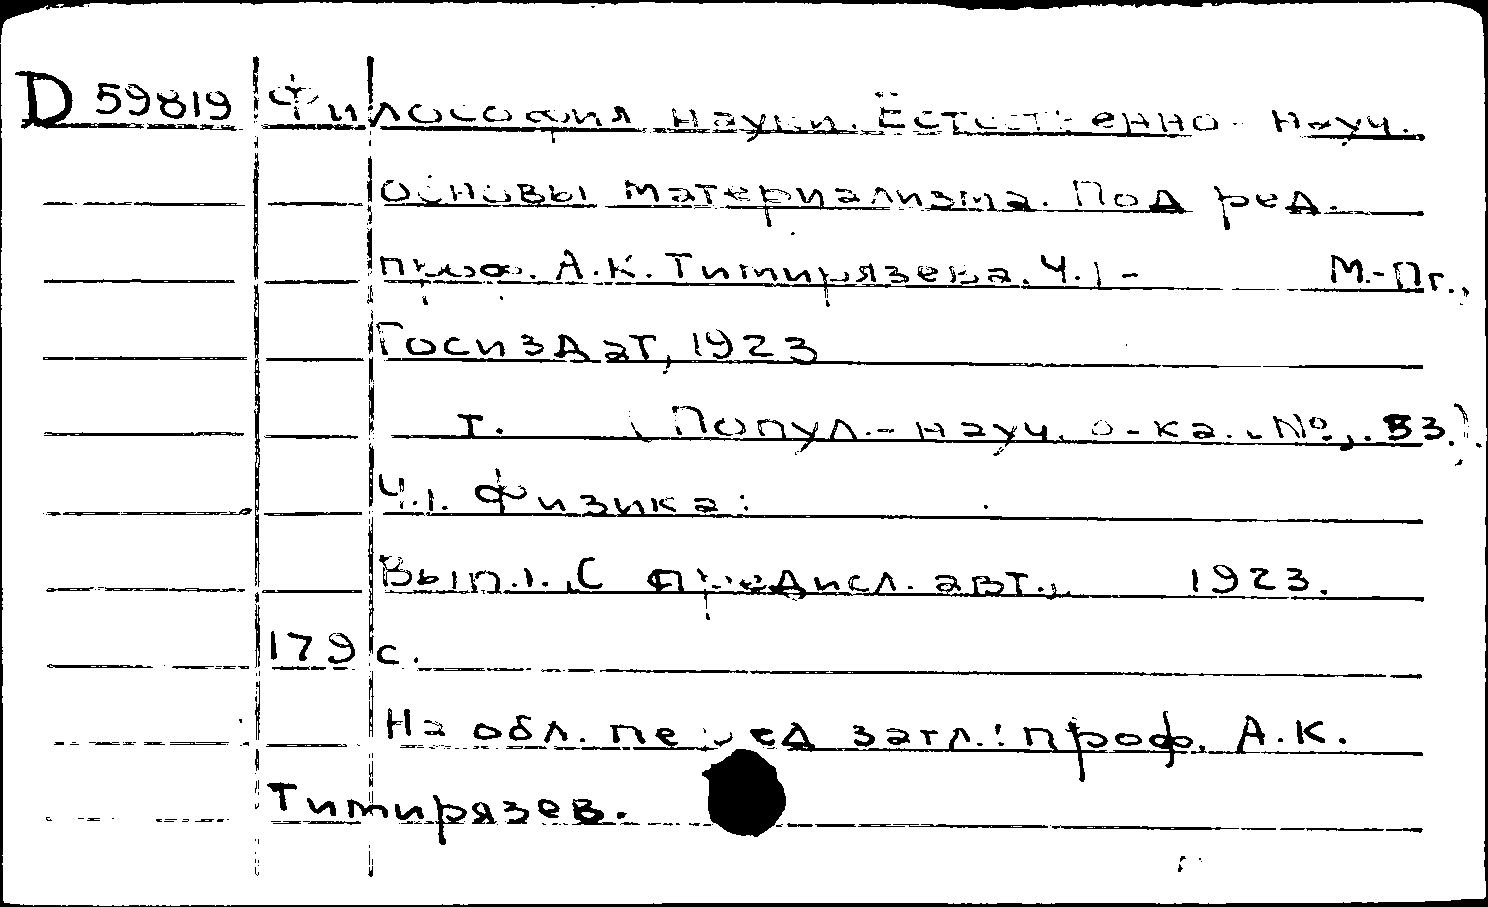 D 59819 Философия науки. Естественно-науч.
основы материализма. Под ред.
проф. А.К. Тимирязева. Ч.1- М.-Пг.,
Госиздат, 1923
т. (Попул.-науч. б-ка. №. 53.).
Ч.1. Физика:
Вып.1. С предисл. авт., 1923.
179 с.
На обл. перед загл.: проф. А.К.
Тимирязев.